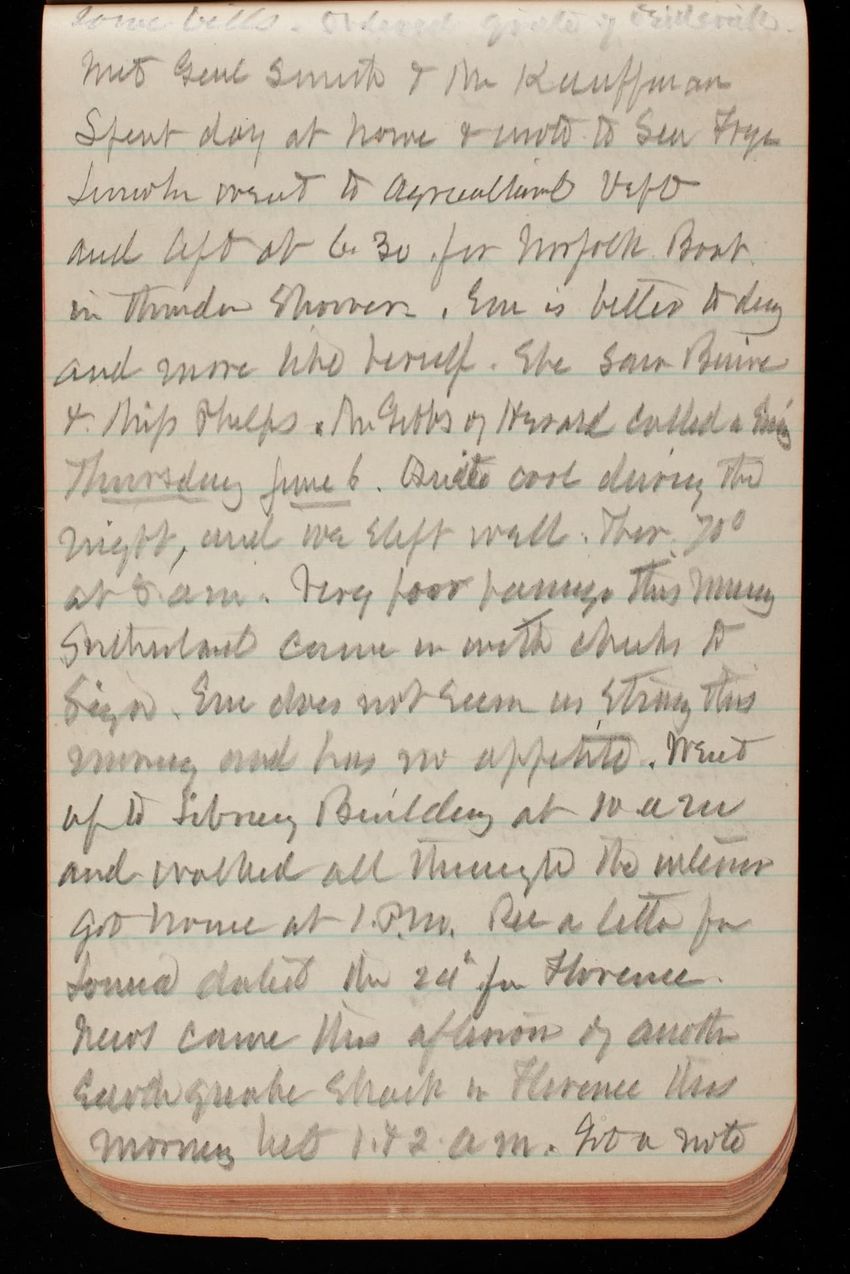 some bills. Ordered
Met Genl Smith & Mr Kauffman
Spent day at home & wrote to Sen Frye
Lincoln went to Agricultural Dept
and left at 6.30 for Norfolk Boat
in thunder showers. Em is better to day
and more like herself. She saw
& Miss Phelps. Mr Gibbs of Havard called in Eving
Thursday June 6. Quite cool during the
night, and we slept well. Ther. 70°
at 8 am. Very poor passage this morning
Sutherland came in with checks to
sign. Em does not seem as strong this
morning and has no appetite. Went
up to Library Building at 10 a m
and walked all through the interior
got home at 1 P.M. Rec a letter fm
Louise dated the 24" fm Florence.
News came this afternoon of another
Earthquake Shock in Florence this
morning bet 1 & 2 a m. Got a note